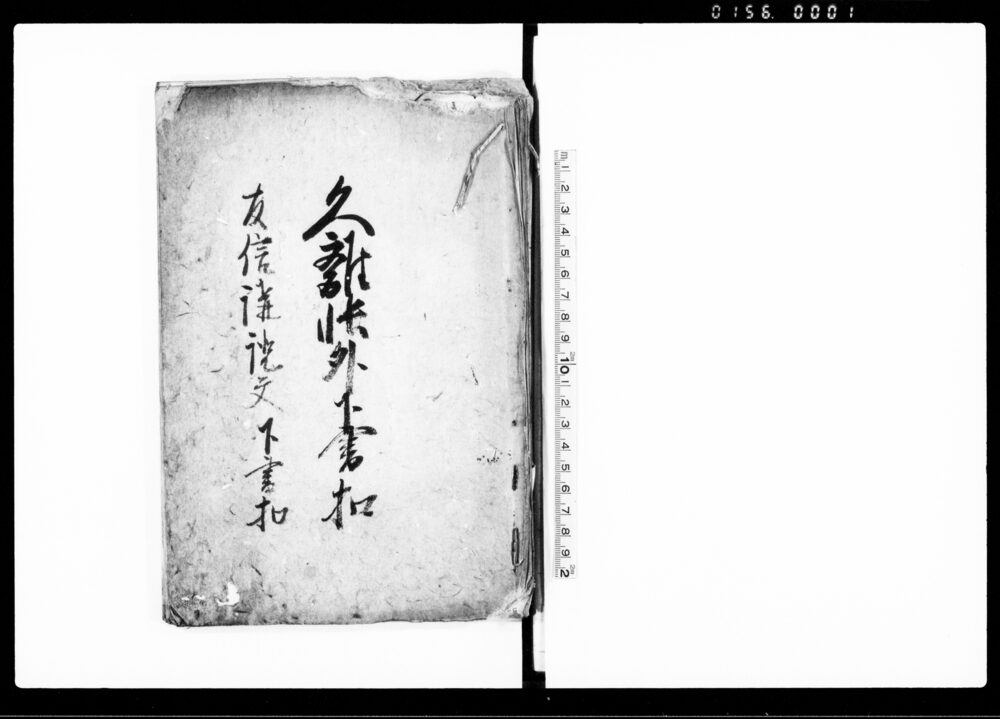 0156. 0001
久離帳外下書扣
友信講説文下書扣
m 1 2 3 4 5 6 7 8 9 10 1 2 3 4 5 6 7 8 9 2